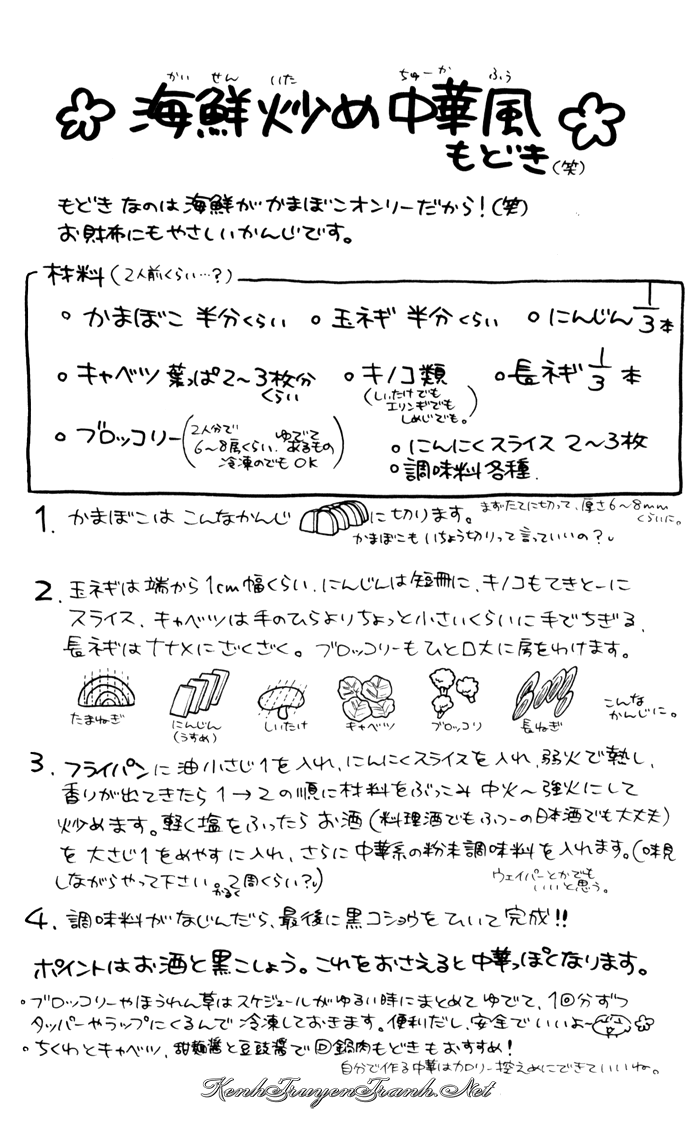 かいせんいた ちゅーかふう
海鮮炒め中華風
もどき(笑)
もどきなのは海鮮がかまぼこオンリーだから!(笑)
お財布にもやさしいかんじです。
材料(2人前くらい…?)
◦かまぼこ 半分くらい ◦玉ネギ 半分くらい ◦にんじん 1/3本
◦キャベツ 葉っぱ2〜3枚分くらい ◦キノコ類(しいたけでもエリンギでもしめじでも。) ◦長ネギ 1/3本
◦ブロッコリー(2人分で6〜8房くらい.ゆでてあるもの 冷凍のでもOK)
◦にんにくスライス 2〜3枚
◦調味料各種.
1. かまぼこは こんなかんじ に切ります。まずたてに切って、厚さ6〜8mmくらいに。
かまぼこもいちょう切りって言っていいの?
2. 玉ネギは端から1cm幅くらい.にんじんは短冊に、キノコもてきとーに
スライス、キャベツは手のひらよりちょっと小さいくらいに手でちぎる、
長ネギはナナメにざくざく。ブロッコリーもひと口大に房をわけます。
たまねぎ にんじん(うすめ) しいたけ キャベツ ブロッコリ 長ねぎ こんなかんじに。
3. フライパンに油小さじ1を入れ、にんにくスライスを入れ、弱火で熱し、
香りが出てきたら1→2の順に材料をぶっこみ中火〜強火にして
炒めます。軽く塩をふったらお酒(料理酒でもふつーの日本酒でも大丈夫)
を大さじ1をめやすに入れ、さらに中華系の粉末調味料を入れます。(味見
しながらやって下さい。かるく2周くらい?)
ウェイパーとかでもいいと思う。
4. 調味料がなじんだら、最後に黒コショウをひいて完成!!
ポイントはお酒と黒こしょう。これをおさえると中華っぽくなります。
◦ブロッコリーやほうれん草はスケジュールがゆるい時にまとめてゆでて、1回分ずつ
タッパーやラップにくるんで冷凍しておきます。便利だし、安全でいいよー
◦ちくわとキャベツ、甜麺醤と豆豉醤で回鍋肉もどきもおすすめ!
自分で作る中華はカロリー控えめにできていいね。
KenhTruyenTranh.Net